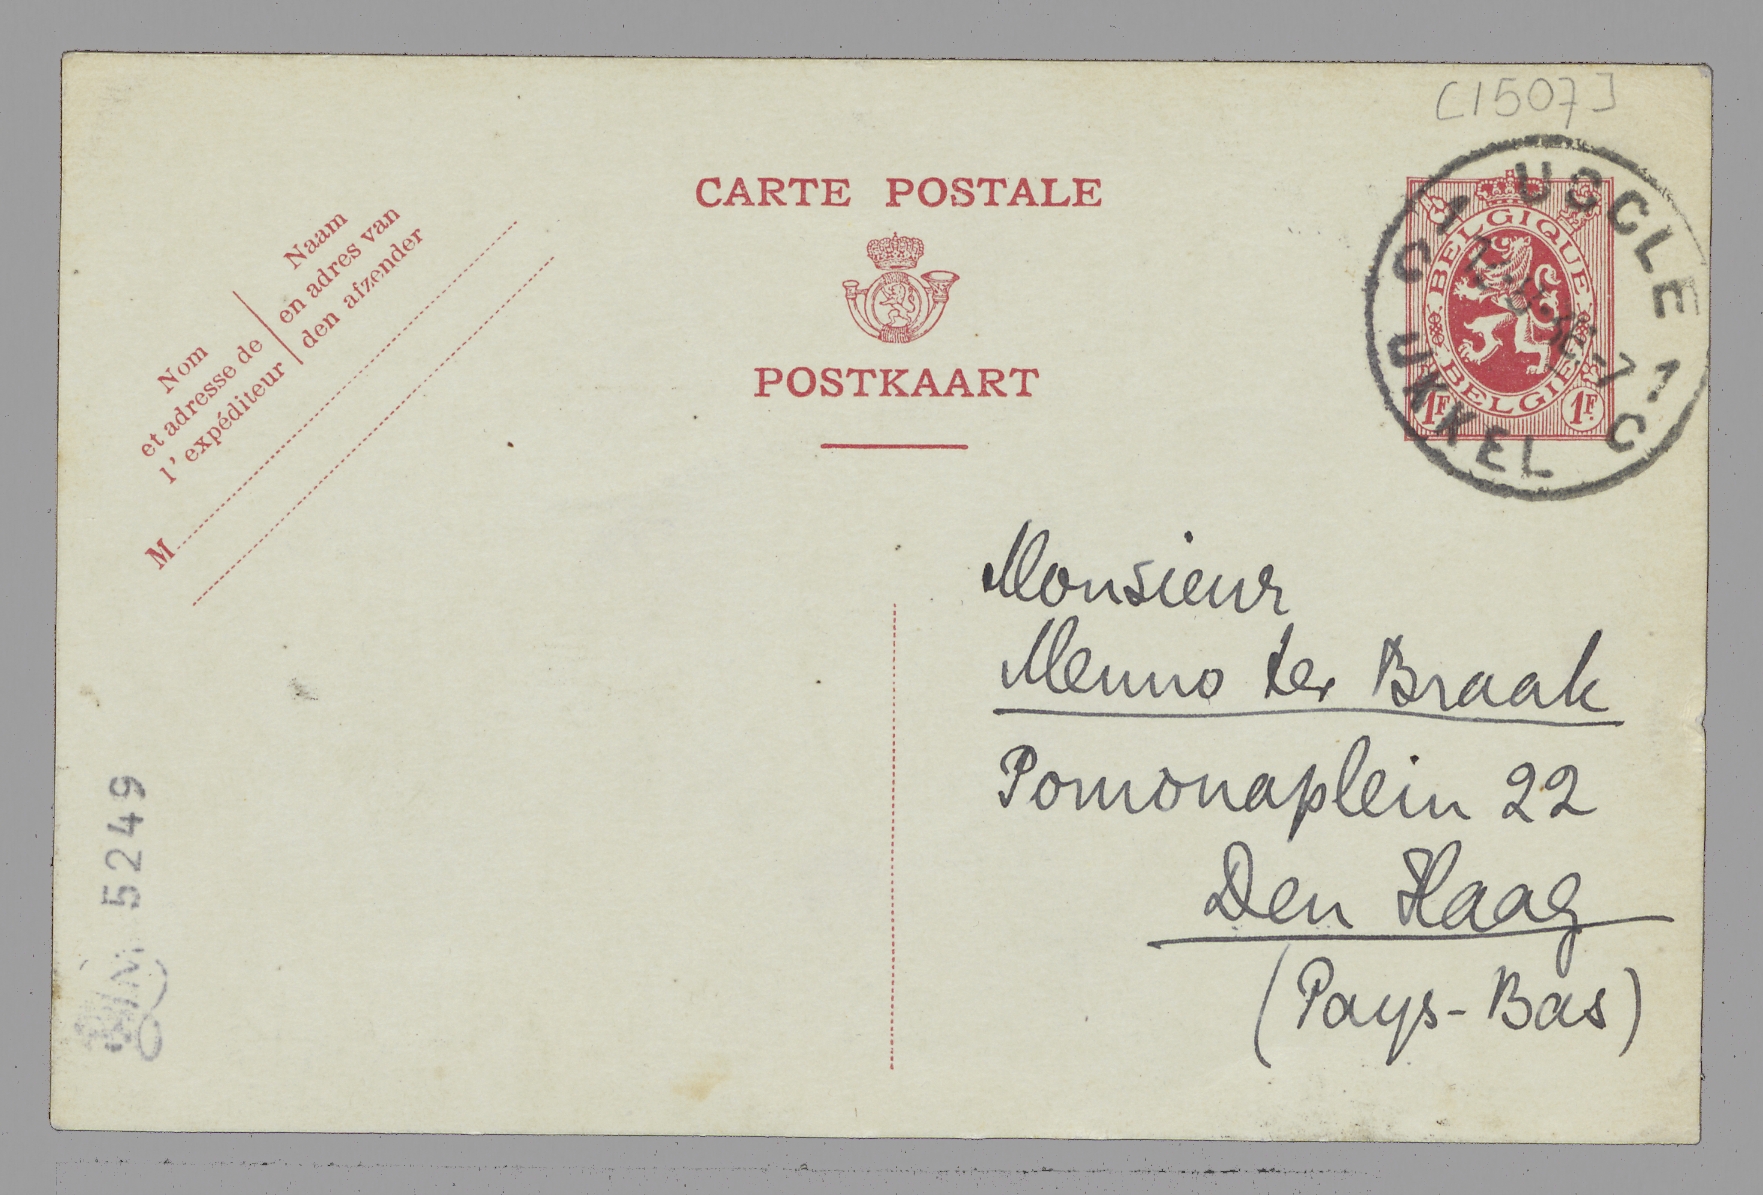 [1507]
CARTE POSTALE
POSTKAART
Nom
et adresse de
l'expéditeur
Naam
en adres van
den afzender
M
USCLE 1
UKKEL
C C
BELGIQUE
BELGIE
1F 1F
Monsieur
Menno ter Braak
Pomonaplein 22
Den Haag
(Pays-Bas)
5249